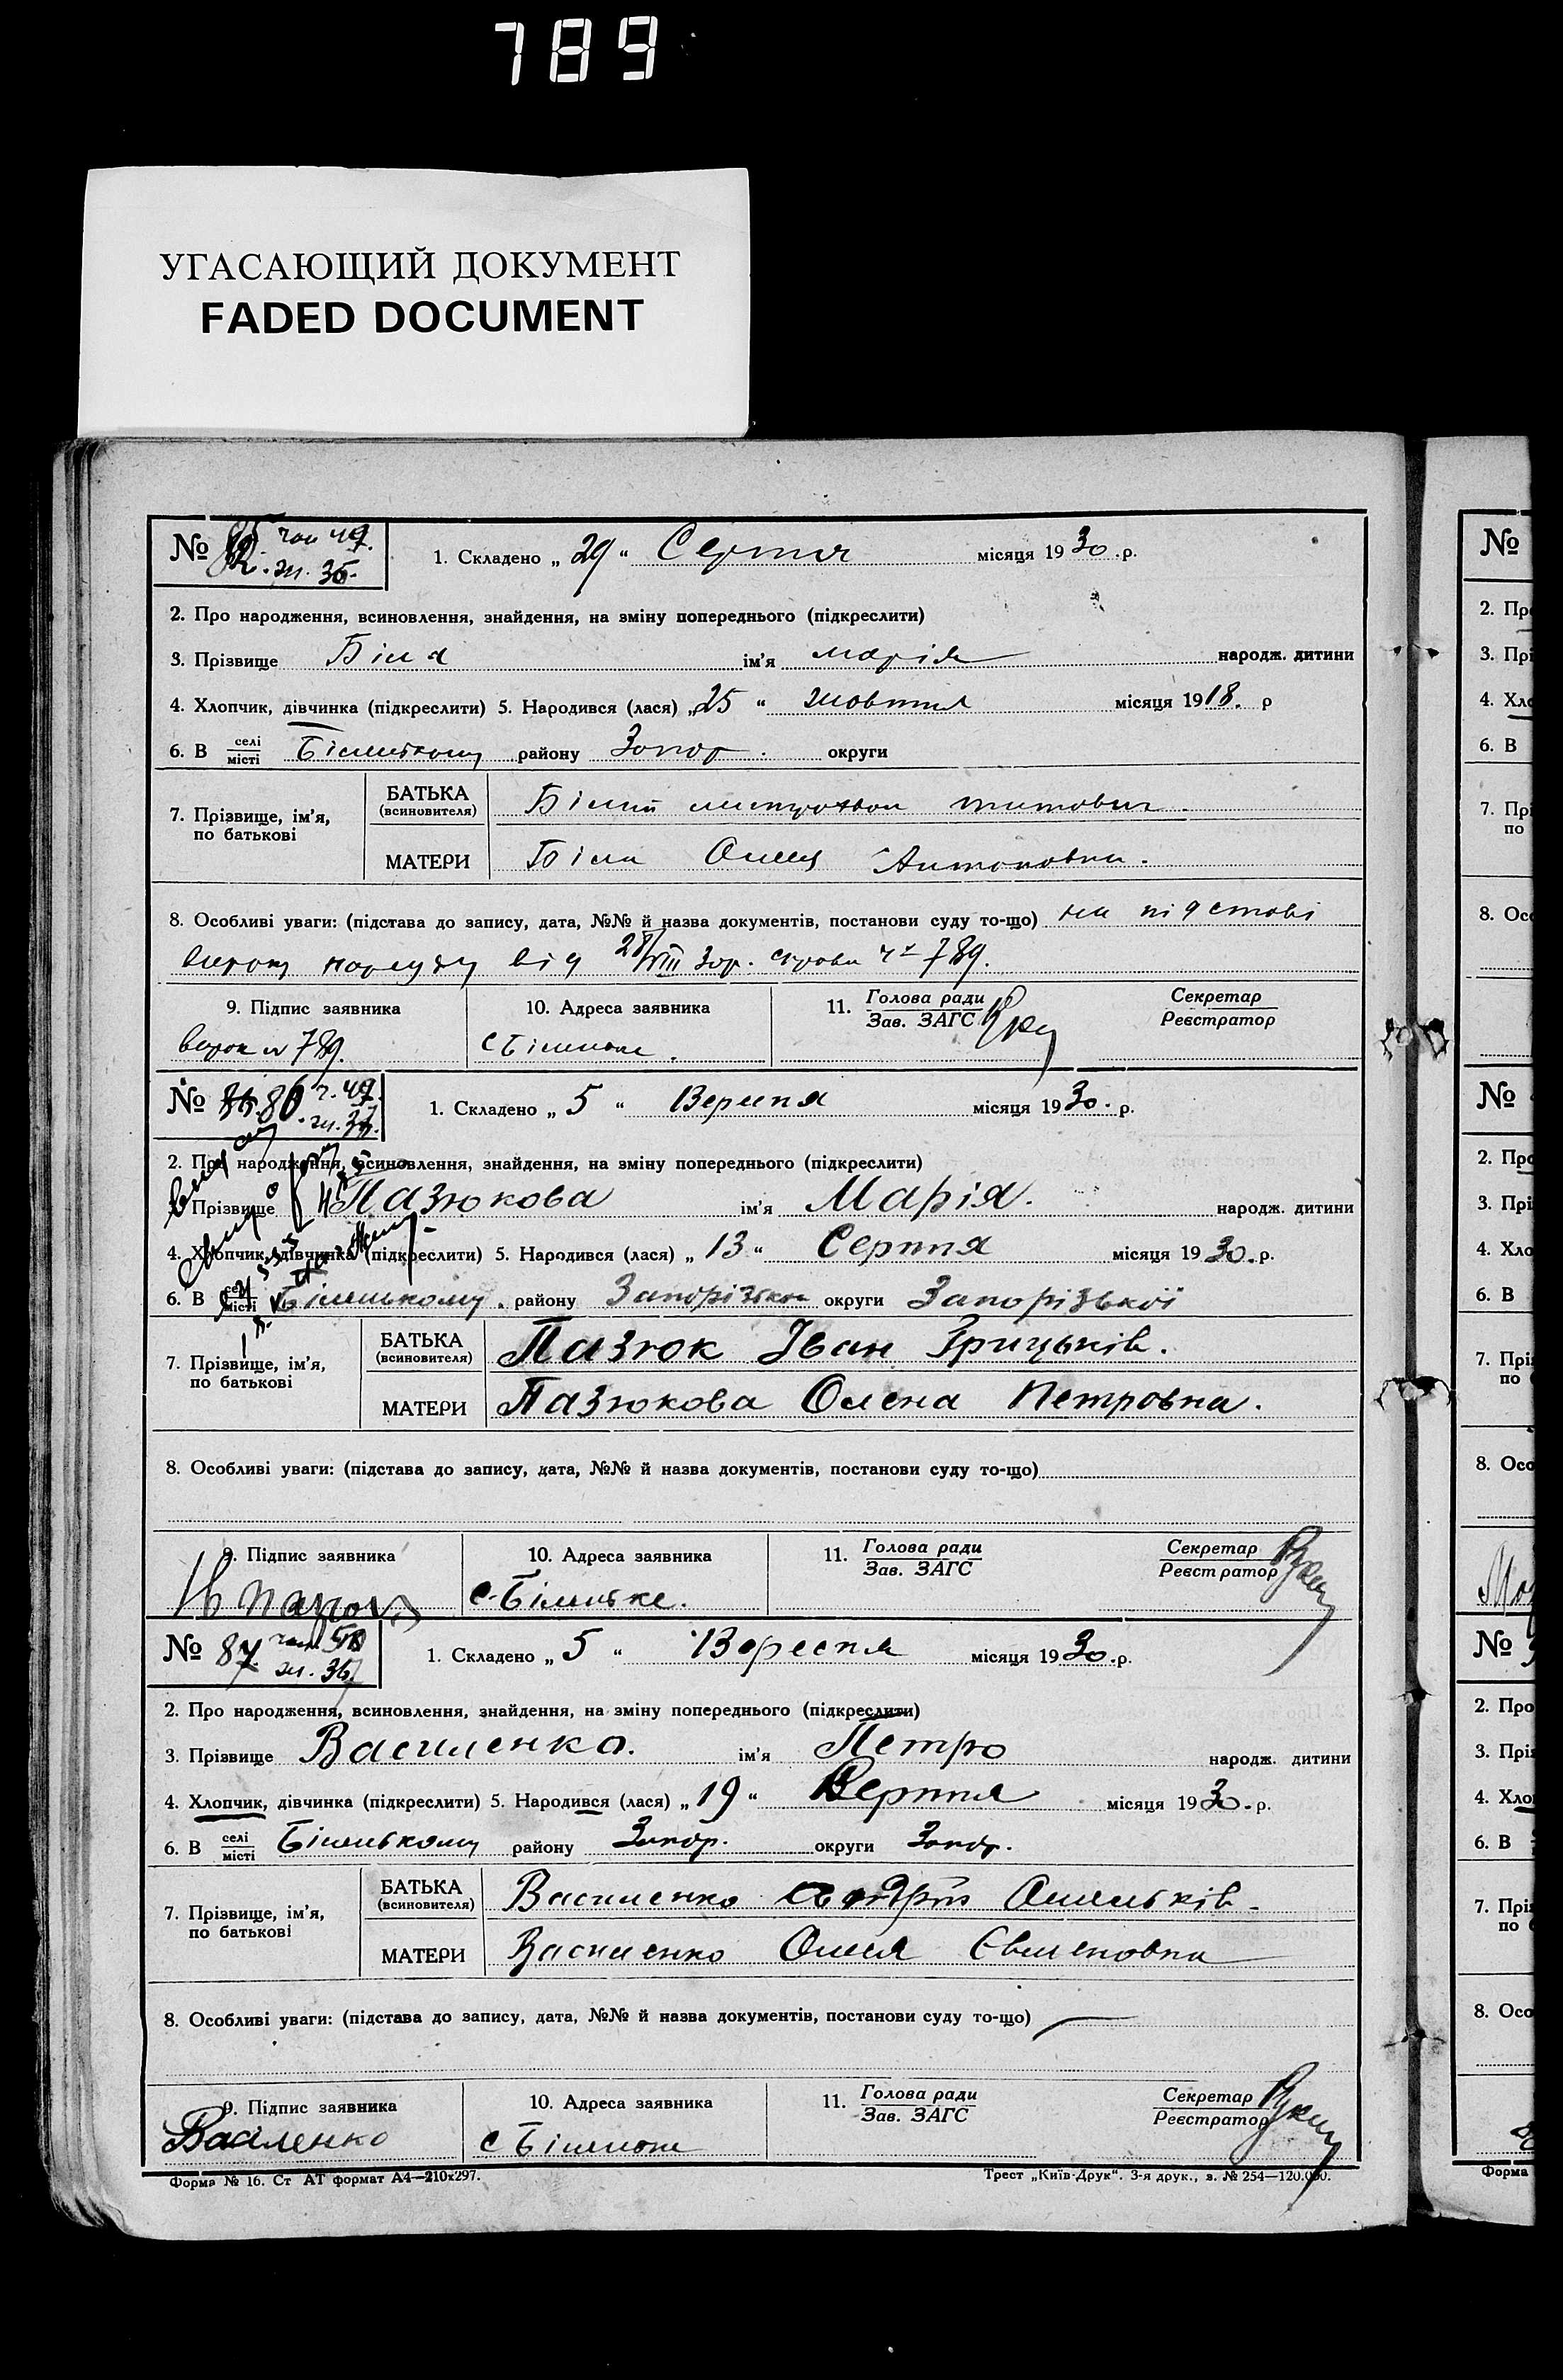 789
УГАСАЮЩИЙ ДОКУМЕНТ
FADED DOCUMENT
№ 85 чол 49.
жі. 36.
1. Складено „ 29 “ Серпня місяця 1930.р.
2. Про народження, всиновлення, знайдення, на зміну попереднього (підкреслити)
3. Прізвище Біла ім'я Марія народж. дитини
4. Хлопчик, дівчинка (підкреслити) 5. Народився (лася) „25 “ жовтня місяця 1918. р
6. В селі/місті Біленькому району Запор. округи
7. Прізвище, ім'я, по батькові
БАТЬКА (всиновителя) Білий митрофан титович.
МАТЕРИ Біла Олия Антоновна.
8. Особливі уваги: (підстава до запису, дата, №№ й назва документів, постанови суду то-що) на підставі
вироку нарсуду від 28/VIII 30р. справа ч 789.
9. Підпис заявника
вирок 789.
10. Адреса заявника
с Біленьке.
11. Голова ради
Зав. ЗАГС
Секретар
Реєстратор
№ 86 ч. 49.
жі. 37.
1. Складено „ 5 “ Вересня місяця 1930. р.
2. Про народження, всиновлення, знайдення, на зміну попереднього (підкреслити)
3. Прізвище Пазюкова ім'я Марія. народж. дитини
4. Хлопчик, дівчинка (підкреслити) 5. Народився (лася) „ 13 “ Серпня місяця 1930.р.
6. В селі/місті Біленькому. району Запорізьком округи Запорізької
7. Прізвище, ім'я, по батькові
БАТЬКА (всиновителя) Пазюк Іван Грицьків.
МАТЕРИ Пазюкова Олена Петровна.
8. Особливі уваги: (підстава до запису, дата, №№ й назва документів, постанови суду то-що)
9. Підпис заявника
10. Адреса заявника
с. Біленьке.
11. Голова ради
Зав. ЗАГС
Секретар
Реєстратор
№ 87. чол 50
жі. 36.
1. Складено „ 5 “ Вересня місяця 1930.р.
2. Про народження, всиновлення, знайдення, на зміну попереднього (підкреслити)
3. Прізвище Василенко. ім'я Петро народж. дитини
4. Хлопчик, дівчинка (підкреслити) 5. Народився (лася) „ 19 “ Серпня місяця 1930.р.
6. В селі/місті Біленькому району Запор. округи Запор.
7. Прізвище, ім'я, по батькові
БАТЬКА (всиновителя) Василенко Омельків.
МАТЕРИ Василенко Олия Євменовна
8. Особливі уваги: (підстава до запису, дата, №№ й назва документів, постанови суду то-що)
9. Підпис заявника
Васіленко
10. Адреса заявника
с Біленьке
11. Голова ради
Зав. ЗАГС
Секретар
Реєстратор
Форма № 16. Ст АТ формат А4—210х297.
Трест „Київ-Друк“. 3-я друк., з. № 254—120.000.